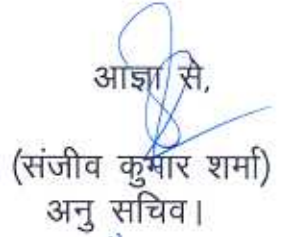 आज्ञा से,
(संजीव कुमार शर्मा)
अनु सचिव।